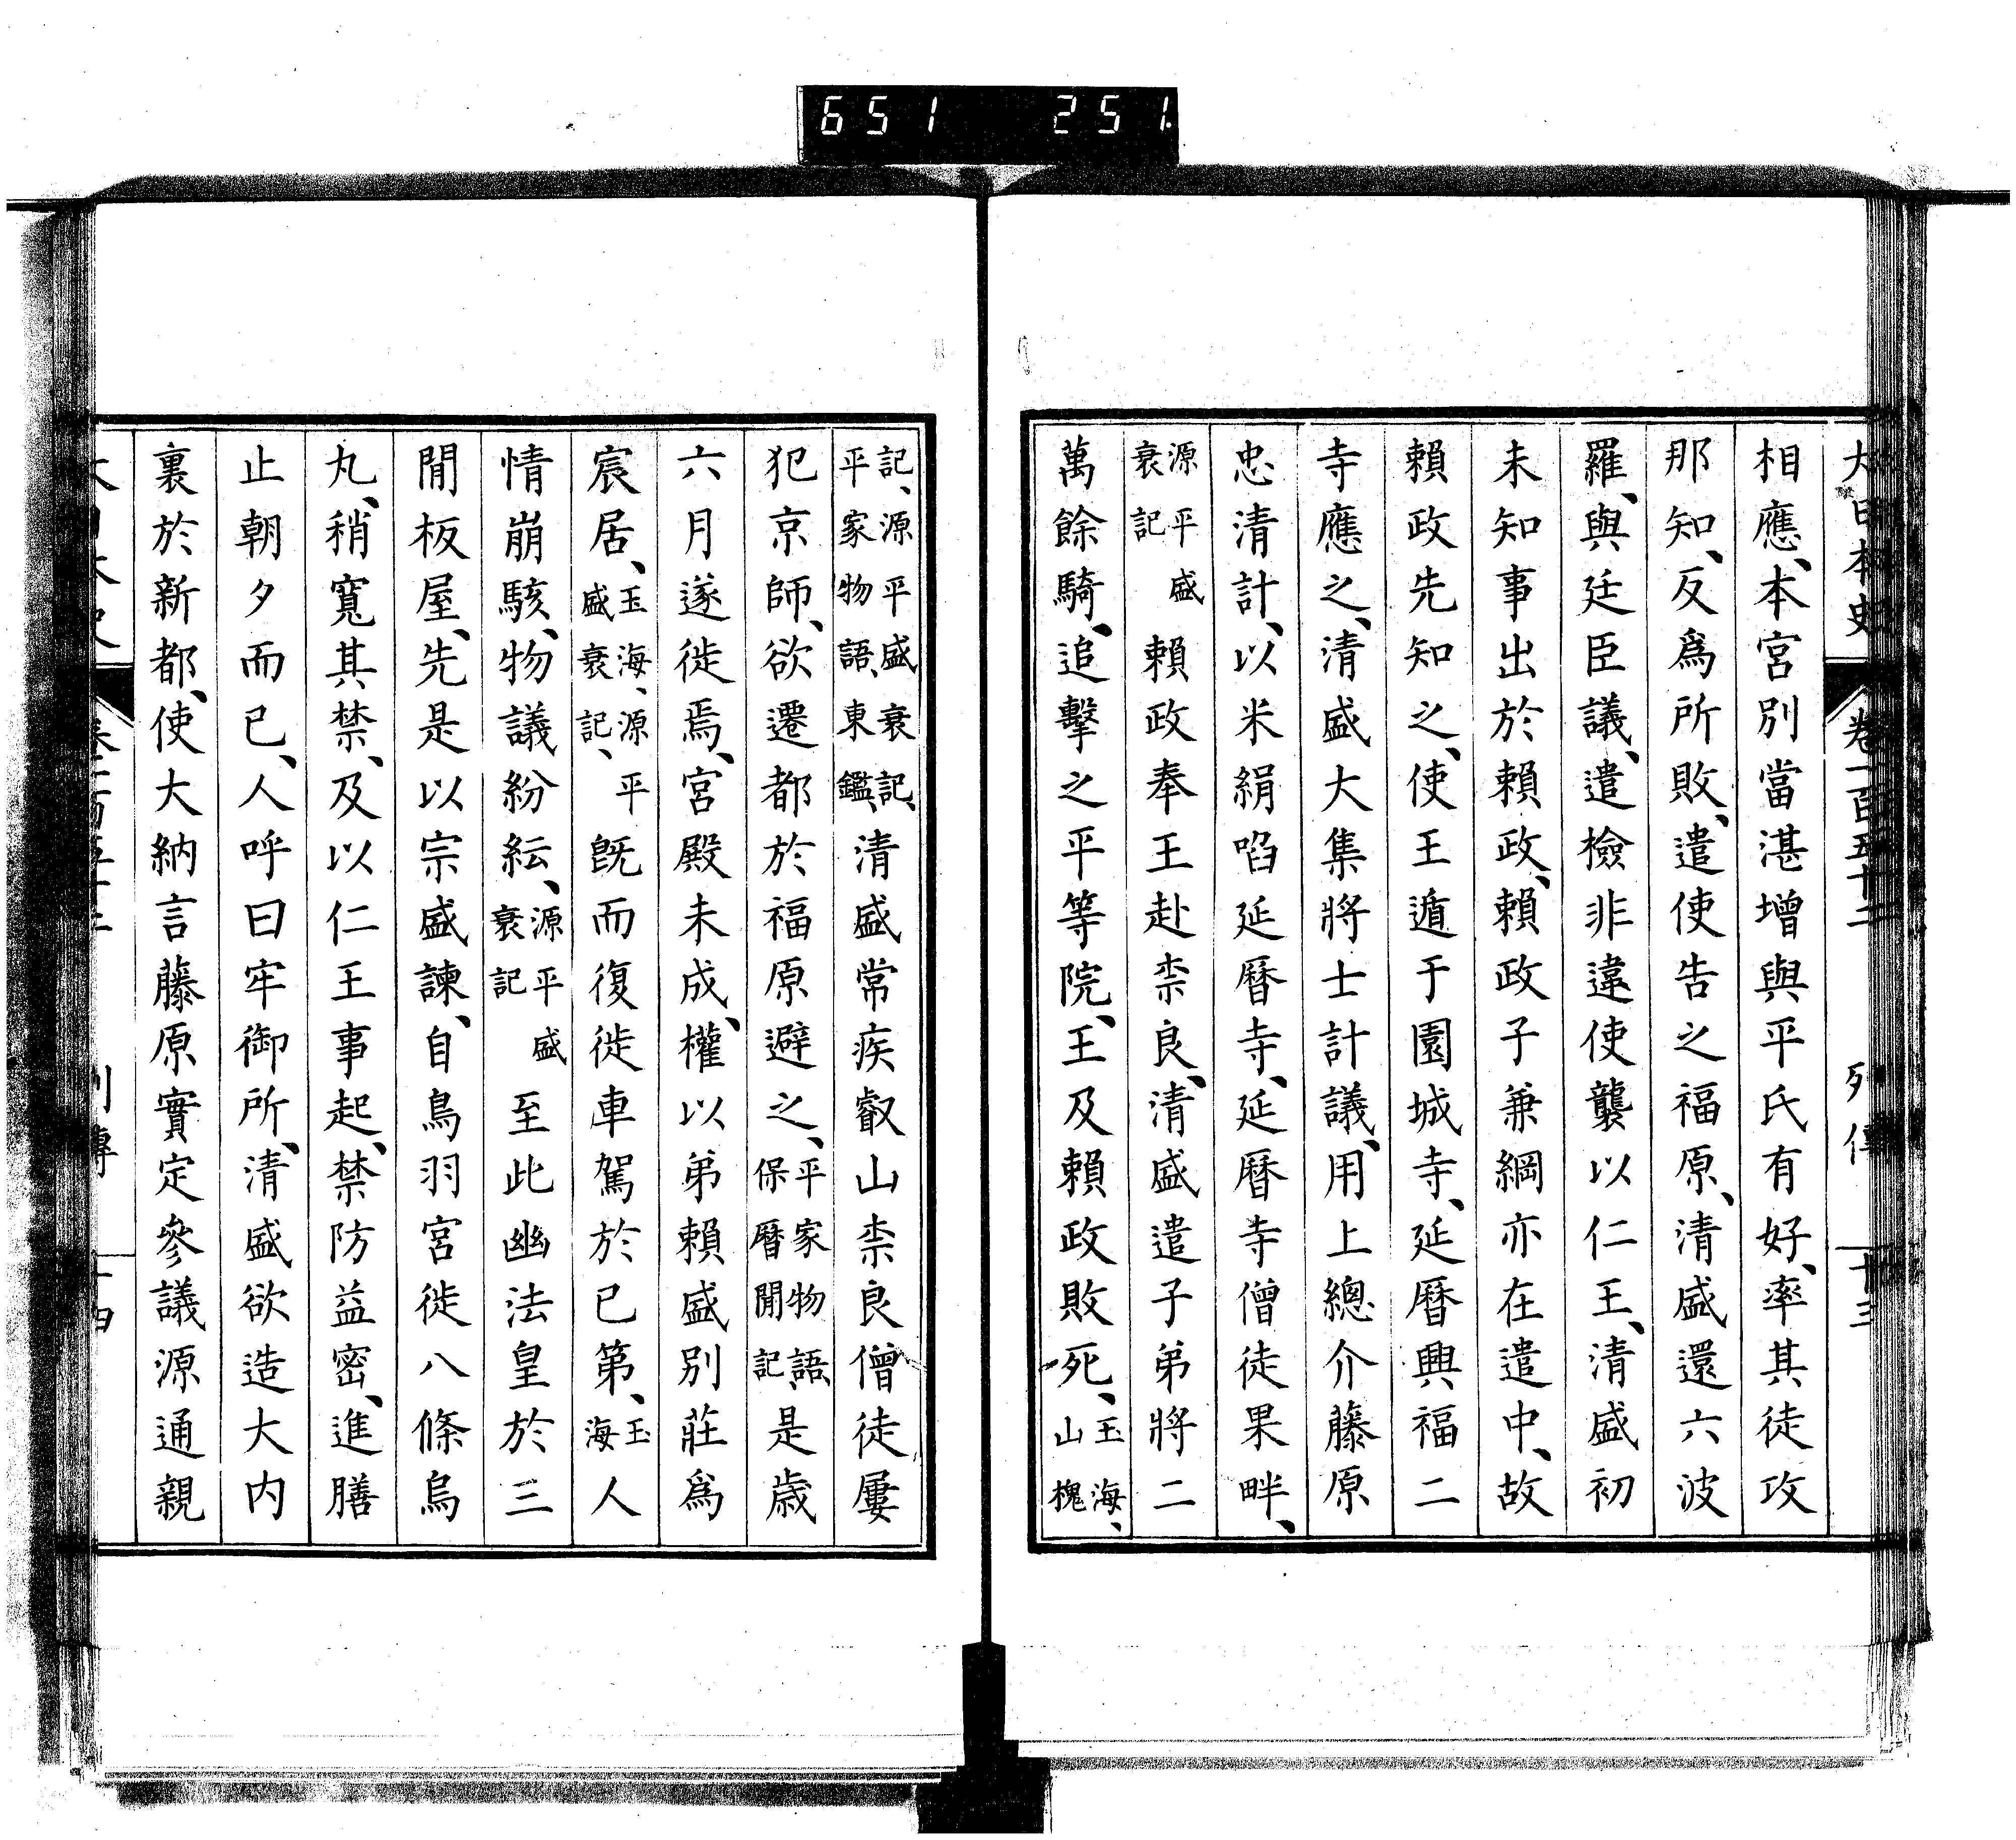 651 251
大日本史 卷一百五十二 列傳 十三
相應、本宮別當湛增與平氏有好、率其徒攻
那知、反爲所敗、遣使告之福原、清盛還六波
羅、與廷臣議、遣檢非違使襲以仁王、清盛初
未知事出於賴政、賴政子兼綱亦在遣中、故
賴政先知之、使王遁于園城寺、延曆興福二
寺應之、清盛大集將士計議、用上總介藤原
忠清計、以米絹啗延曆寺、延曆寺僧徒果畔、
源平盛衰記賴政奉王赴柰良、清盛遣子弟將二
萬餘騎、追擊之平等院、王及賴政敗死、玉海、山槐
記、源平盛衰記、平家物語、東鑑、清盛常疾叡山柰良僧徒屢
犯京師、欲遷都於福原避之、平家物語、保曆閒記是歲
六月遂徙焉、宮殿未成、權以弟賴盛別莊爲
宸居、玉海、源平盛衰記、既而復徙車駕於已第、玉海人
情崩駭、物議紛紜、源平盛衰記至此幽法皇於三
閒板屋、先是以宗盛諫、自鳥羽宮徙八條烏
丸、稍寬其禁、及以仁王事起、禁防益密、進膳
止朝夕而已、人呼曰牢御所、清盛欲造大內
裏於新都、使大納言藤原實定參議源通親
列傳